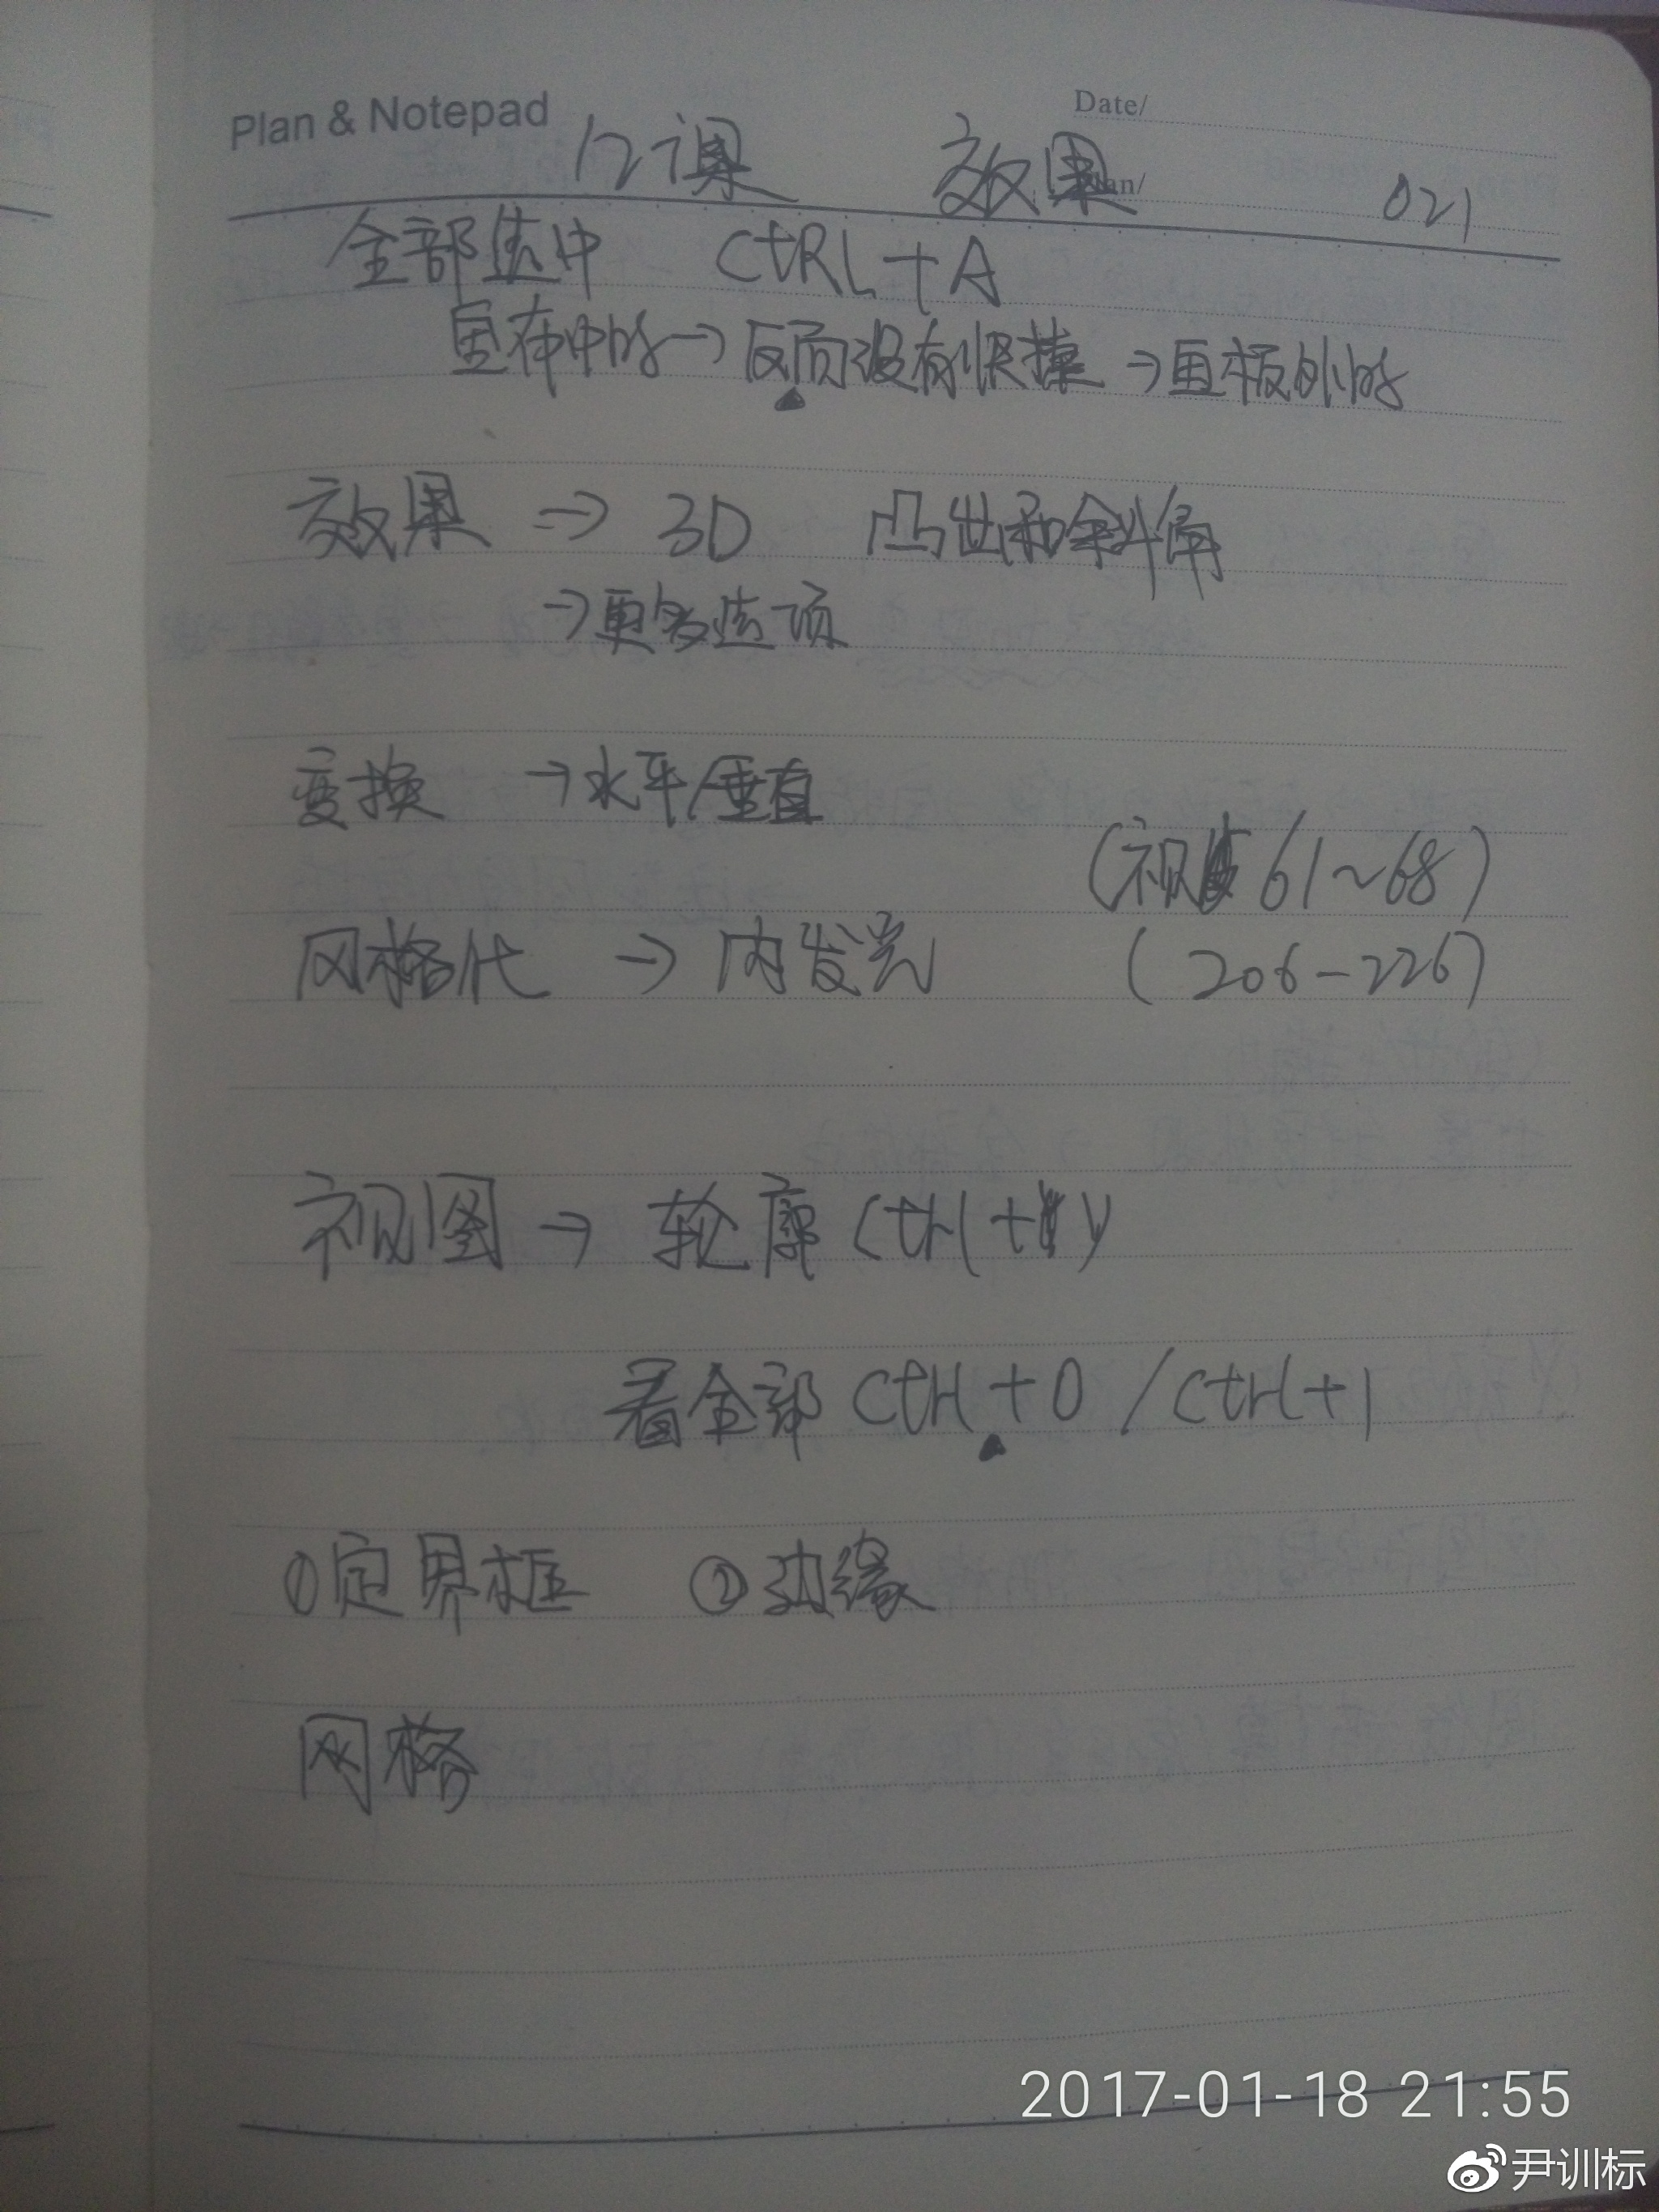 Plan & Notepad
Date/
12课 效果 021
Plan/
全部选中 CtRL+A
画布中的→反页没有快捷→画板外的
效果 → 3D 凸出和斜角
→更多选项
变换 →水平/垂直
(视频 61~68)
风格化 → 内发光 (206-226)
视图 → 轮廓 Ctrl+Y
看全部 Ctrl+0 / Ctrl+1
①定界框 ②边缘
网格
2017-01-18 21:55
尹训标